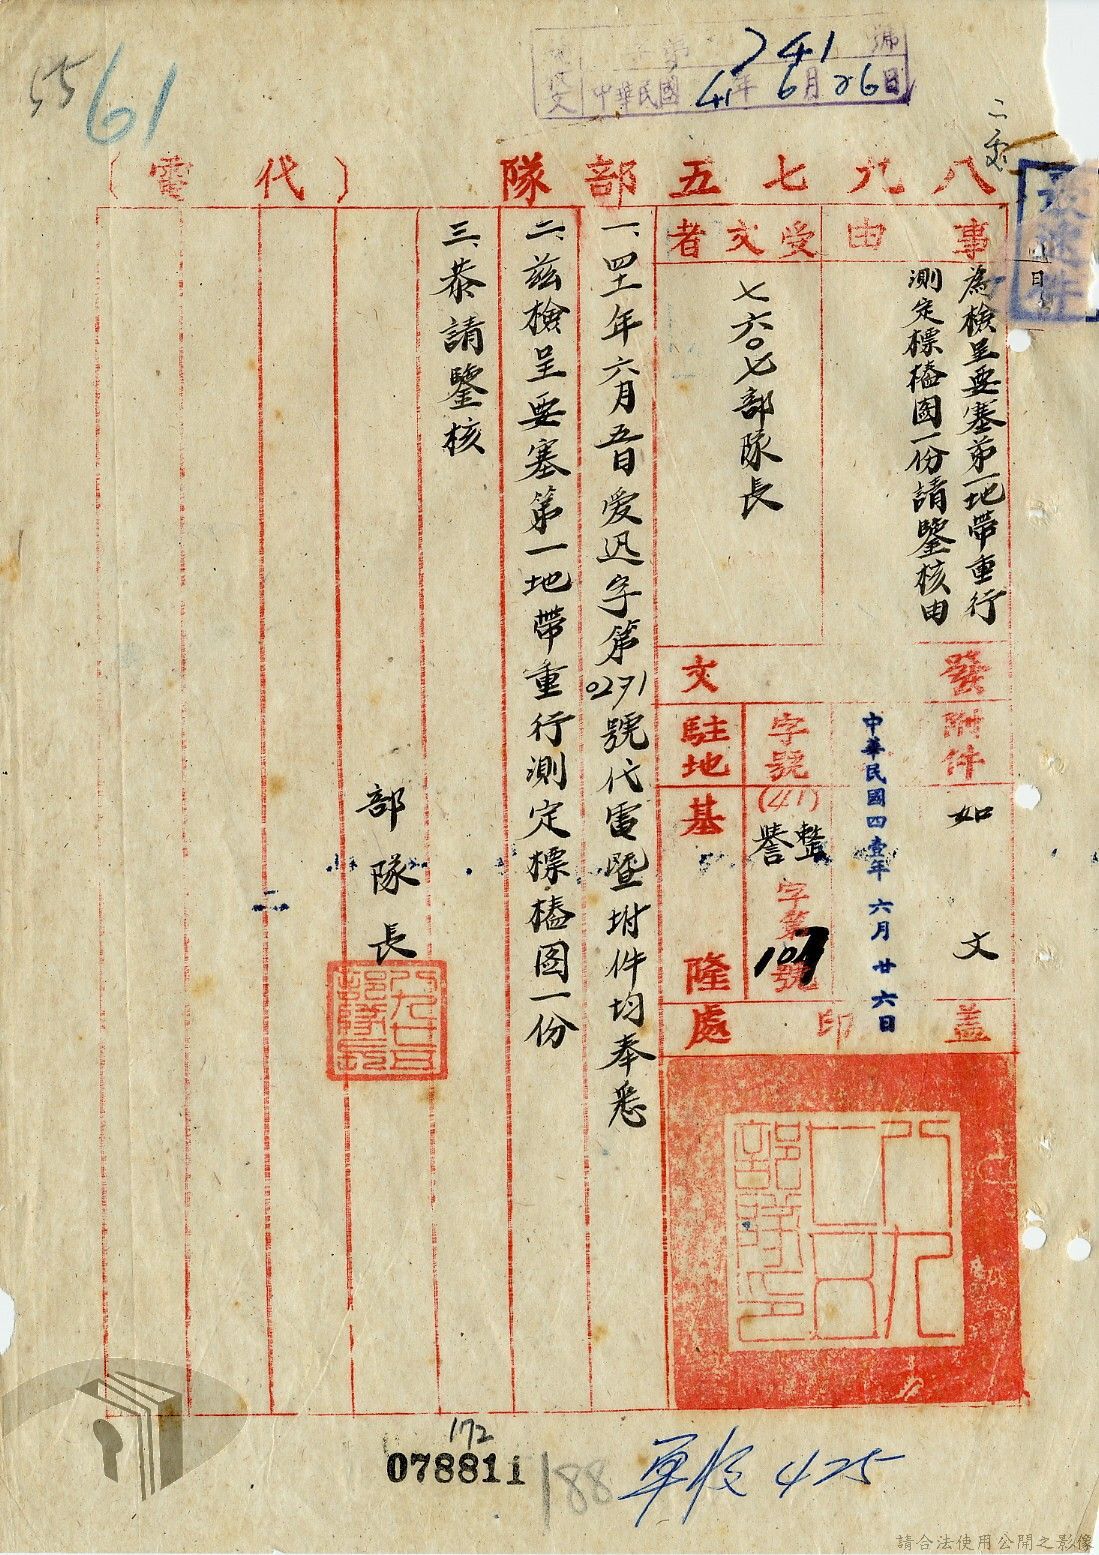 55
61
741號
中華民國41年6月26日
八九七五部隊(代電)
最速件
事由
為檢呈要塞第一地帶重行
測定標樁圖一份請鑒核由
受文者
七六〇七部隊長
發文
附件
如文
中華民國四壹年六月廿六日
字號
(41)
字第107號
駐地
基隆
蓋印處
一、四十一年六月五日愛迅字第0271號代電暨坿件均奉悉
二、茲檢呈要塞第一地帶重行測定標樁圖一份
三、恭請鑒核
部隊長
172
078811
188
425
請合法使用公開之影像